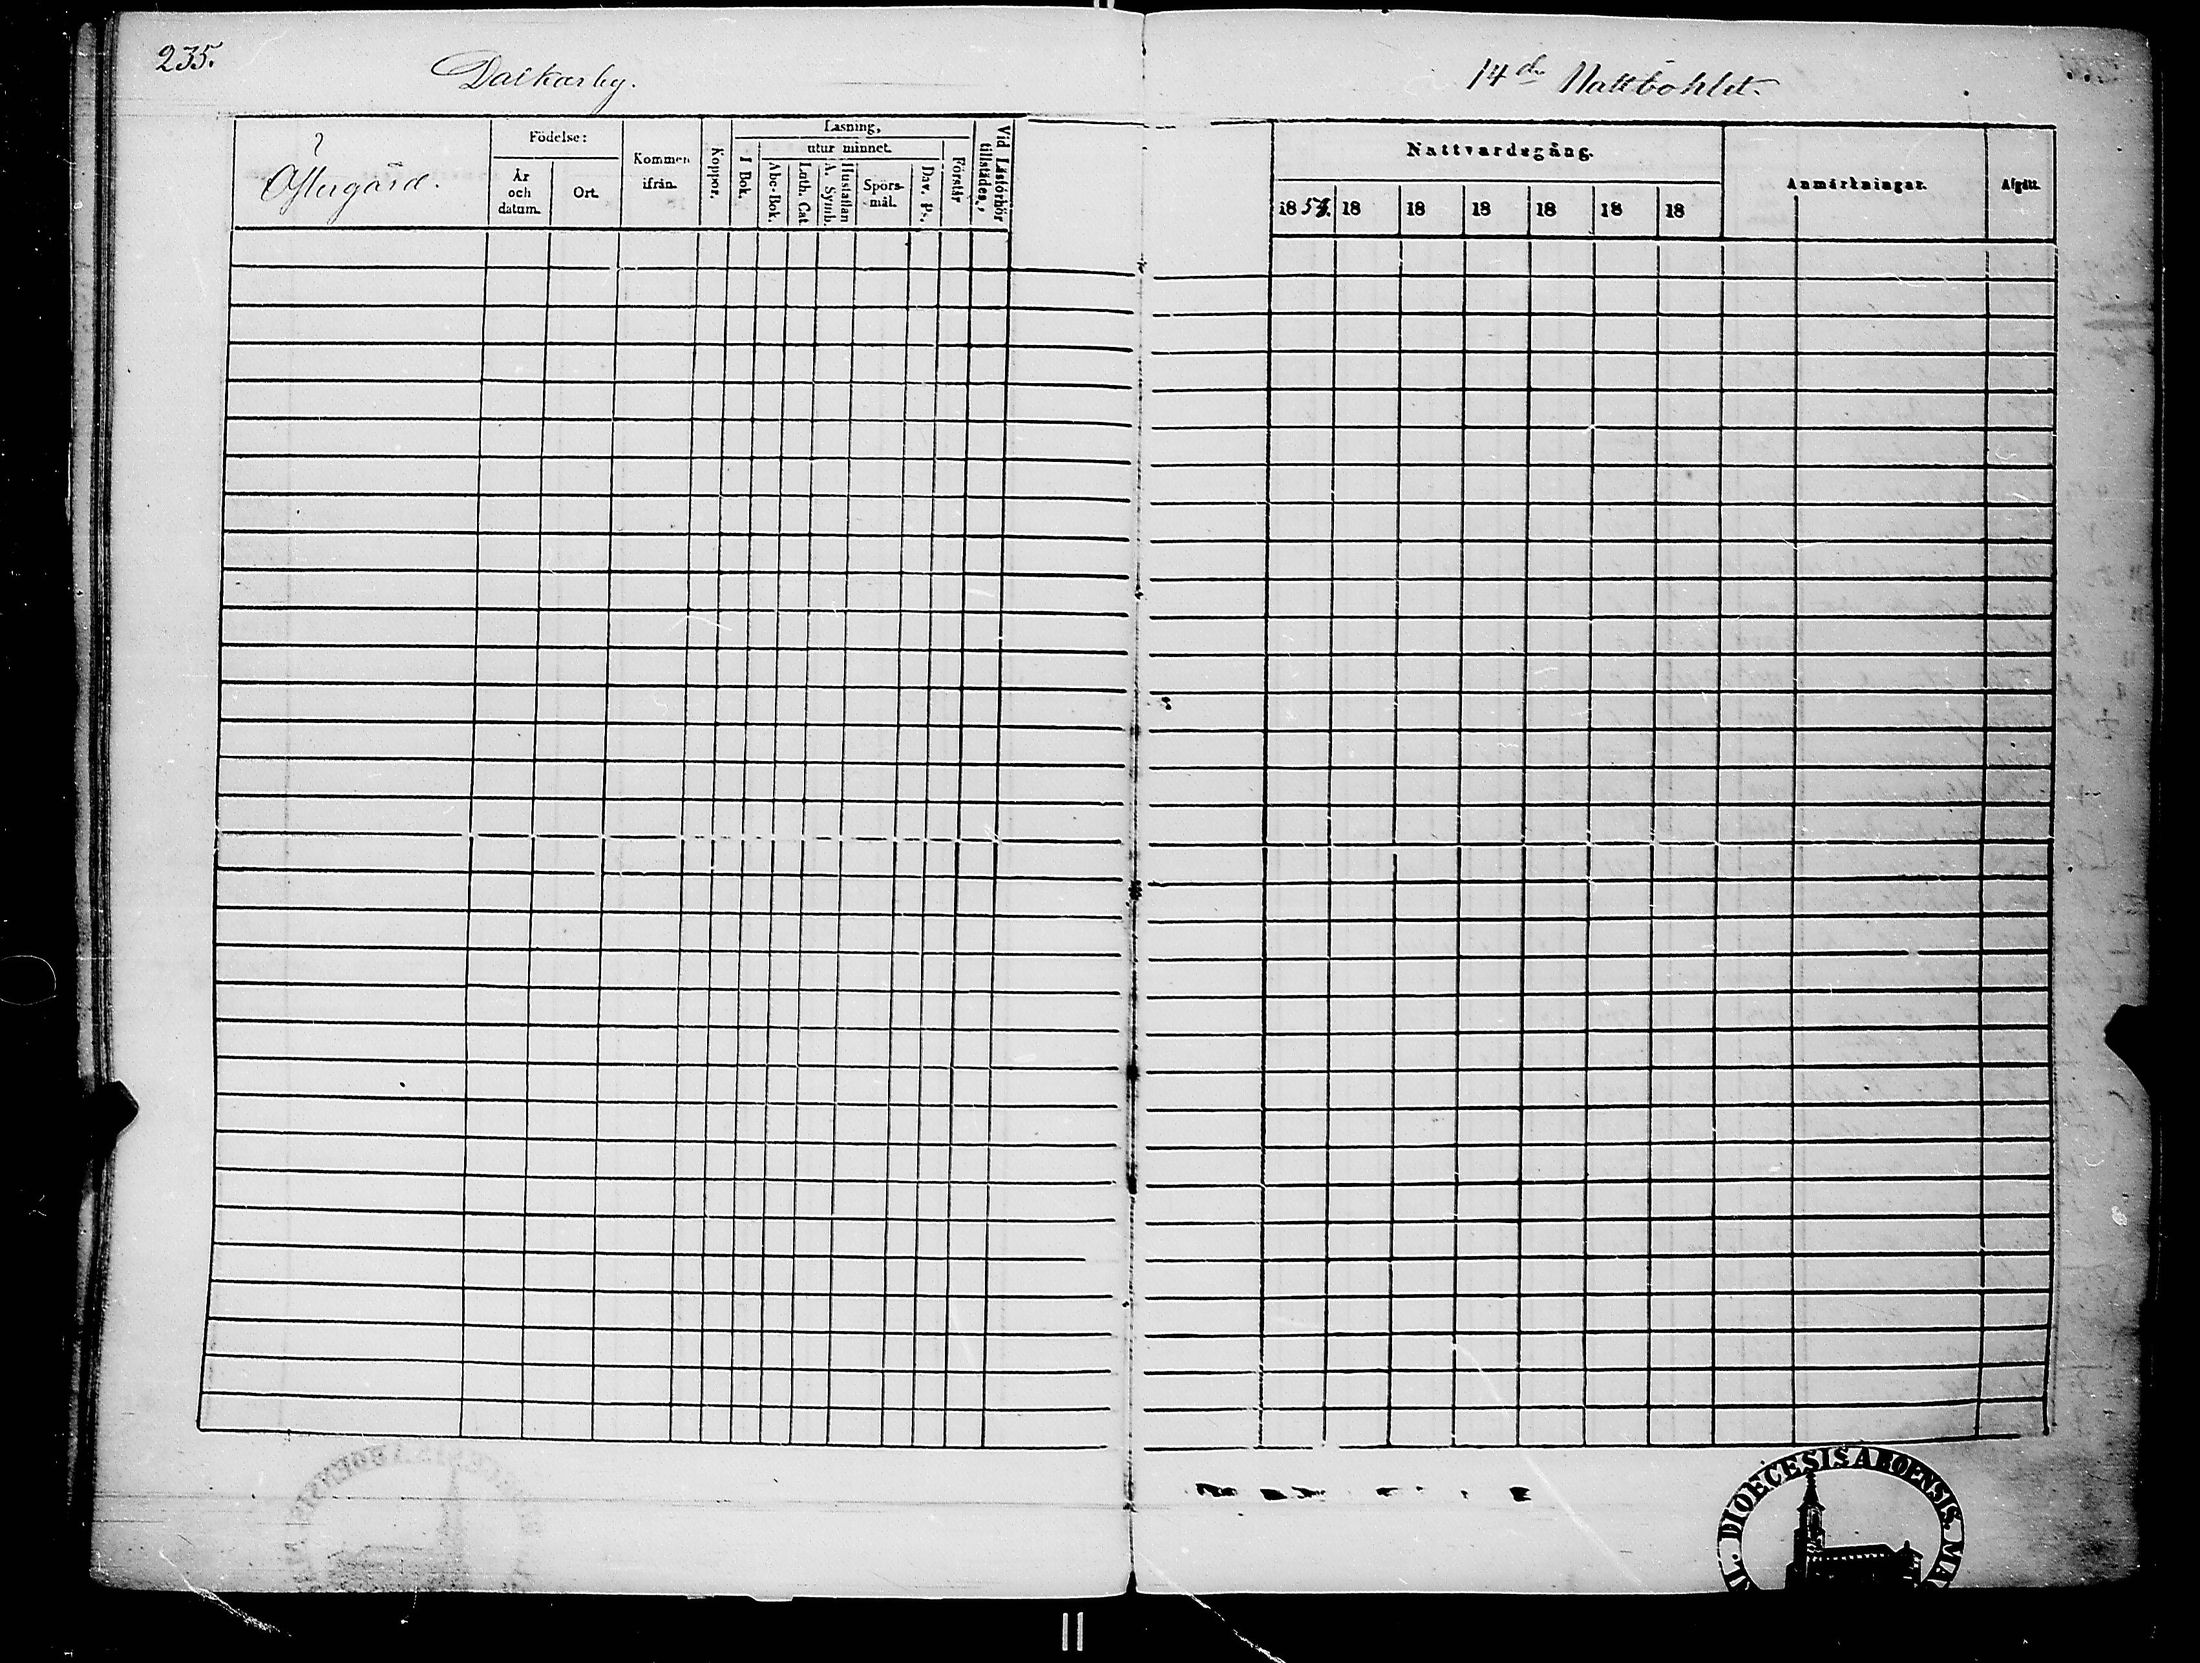 235.
Dalkarby.
14de Mattbohlet.
Östergård.
Födelse:
År och datum.
Ort.
Kommen ifrån.
Koppor.
Läsning,
utur minnet.
I Bok.
Abc-Bok.
Luth. Cat.
Hustaflan A. Symb.
Spörs-mål.
Dav. Ps.
Förstår
Vid Läsförhör tillstädes.
Nattvardsgång.
1854. 18 18 18 18 18 18
Anmärkningar.
Afgått.
DIOECESIS ABOENSIS.